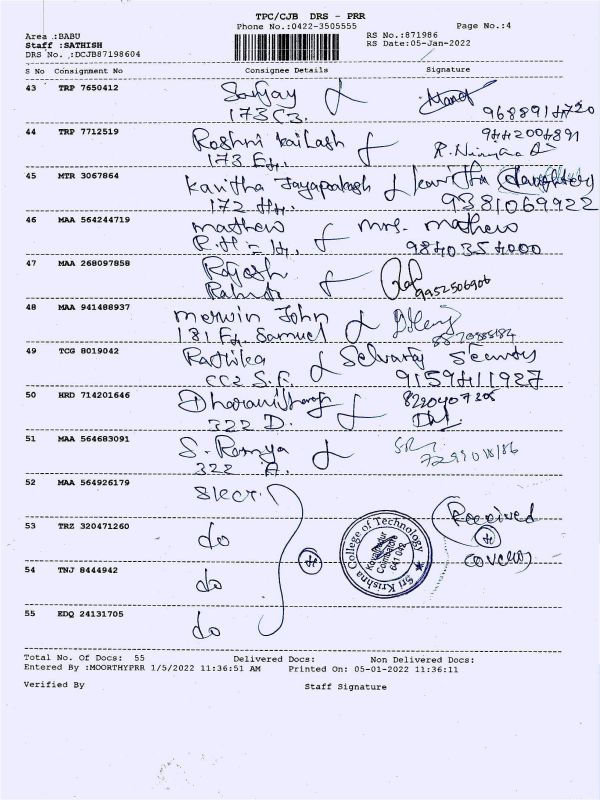 TPC/CJB DRS - PRR
Phone No.:0422-3505555
Page No.:4
Area :BABU
RS No.:871986
Staff :SATHISH
RS Date:05-Jan-2022
DRS No. :DCJB87198604
S No Consignment No Consignee Details Signature
43 TRP 7650412 Sanjay
173 C3. 9688914720
44 TRP 7712519 Roshni Kailash 9442004891
173 E4.
45 MTR 3067864 Kavitha Jayaprakash Kavitha (daughter)
172 H4. 9381069922
46 MAA 564244719 Mathew Mrs. Mathew
R.H - 14. 9840354000
47 MAA 268097858 Rajesh
9952506906
48 MAA 941488937 Merwin John
181 F4, Samuel
49 TCG 8019042 Radhika Selvaraj Security
CC2 S.F. 9159411927
50 HRD 714201646
322 D.
51 MAA 564683091 S. Ramya
322 A.
52 MAA 564926179 SKCT.
Received
53 TRZ 320471260 do
(4)
Sri Krishna College of Technology
Kovaipudur
Coimbatore
641 042
covers
54 TNJ 8444942 do
(4)
55 EDQ 24131705 do
Total No. Of Docs: 55 Delivered Docs: Non Delivered Docs:
Entered By :MOORTHYPRR 1/5/2022 11:36:51 AM Printed On: 05-01-2022 11:36:11
Verified By Staff Signature